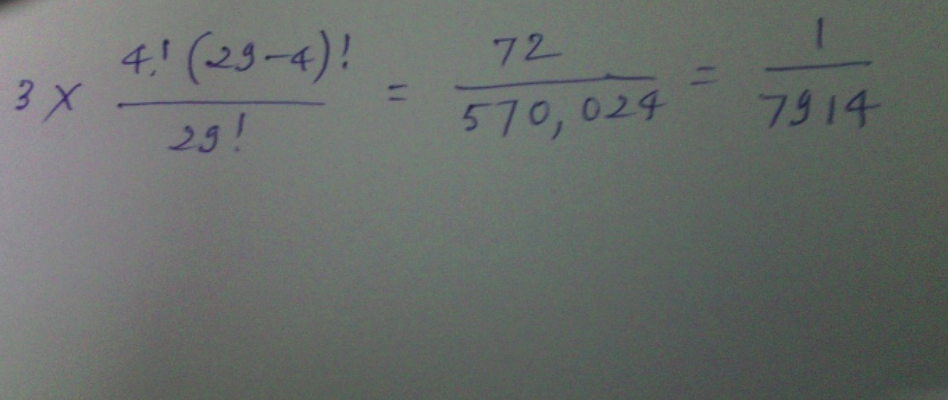 3 × 4!(29-4)! / 29! = 72 / 570,024 = 1 / 7914